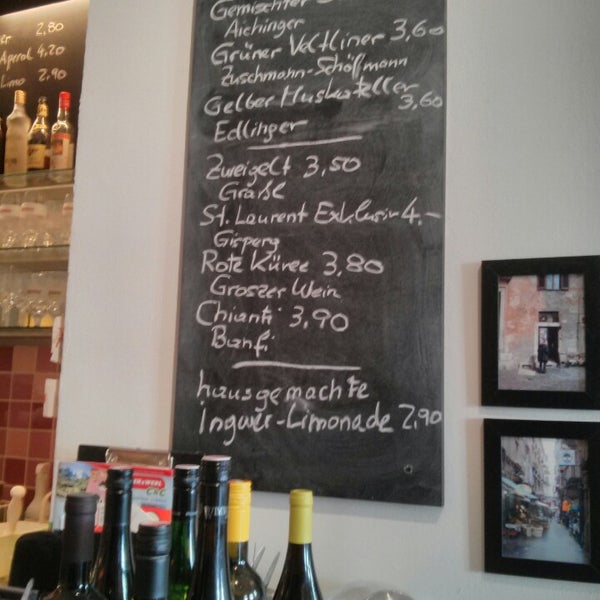 2,80
Aperol 4,20
Limo 2,90
Gemischter
Aichinger
Grüner Veltliner 3,60
Zuschmann-Schöfmann
Gelber Muskateller
3,60
Edlinger
Zweigelt 3,50
Graßl
St. Laurent Exklusiv 4.-
Gisperg
Rote Küvee 3,80
Groszer Wein
Chianti 3,90
Banfi
hausgemachte
Ingwer-Limonade 2,90